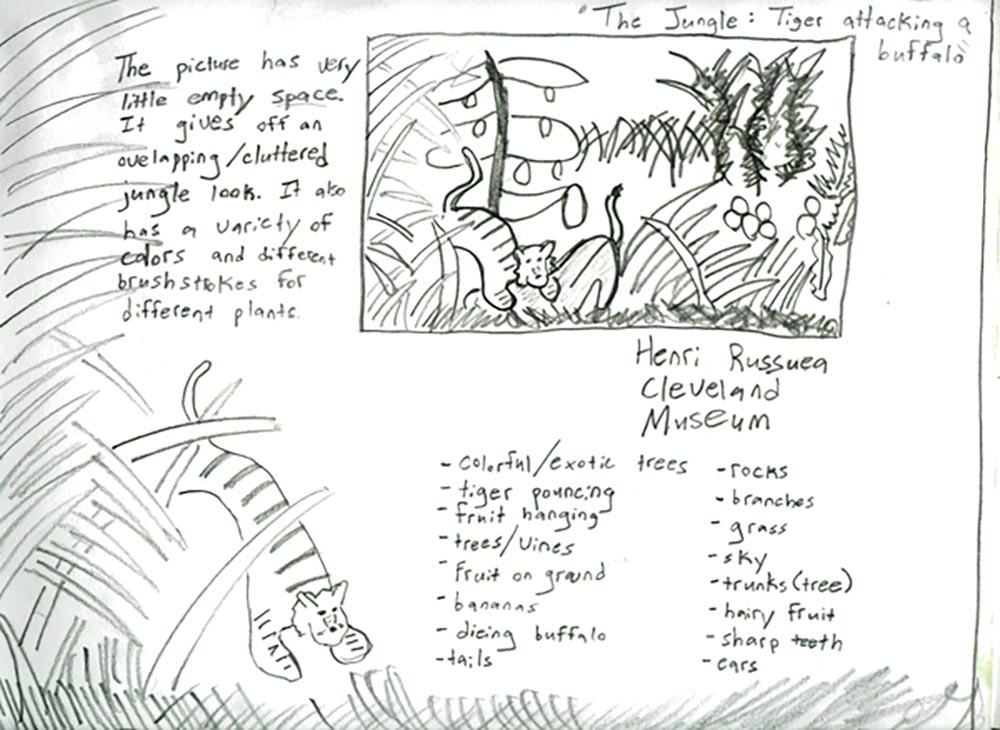 "The Jungle: Tiger attacking a
buffalo"
The picture has very
little empty space.
It gives off an
ovelapping/cluttered
jungle look. It also
has a variety of
colors and different
brushstrokes for
different plants.
Henri Russuea
Cleveland
Museum
- colorful/exotic trees
- tiger pouncing
- fruit hanging
- trees/vines
- fruit on ground
- bananas
- dieing buffalo
- tails
- rocks
- branches
- grass
- sky
- trunks (tree)
- hairy fruit
- sharp teeth
- ears